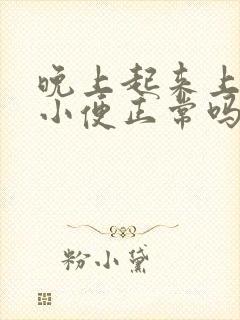 晚上起来上
小便正常吗
粉小黛